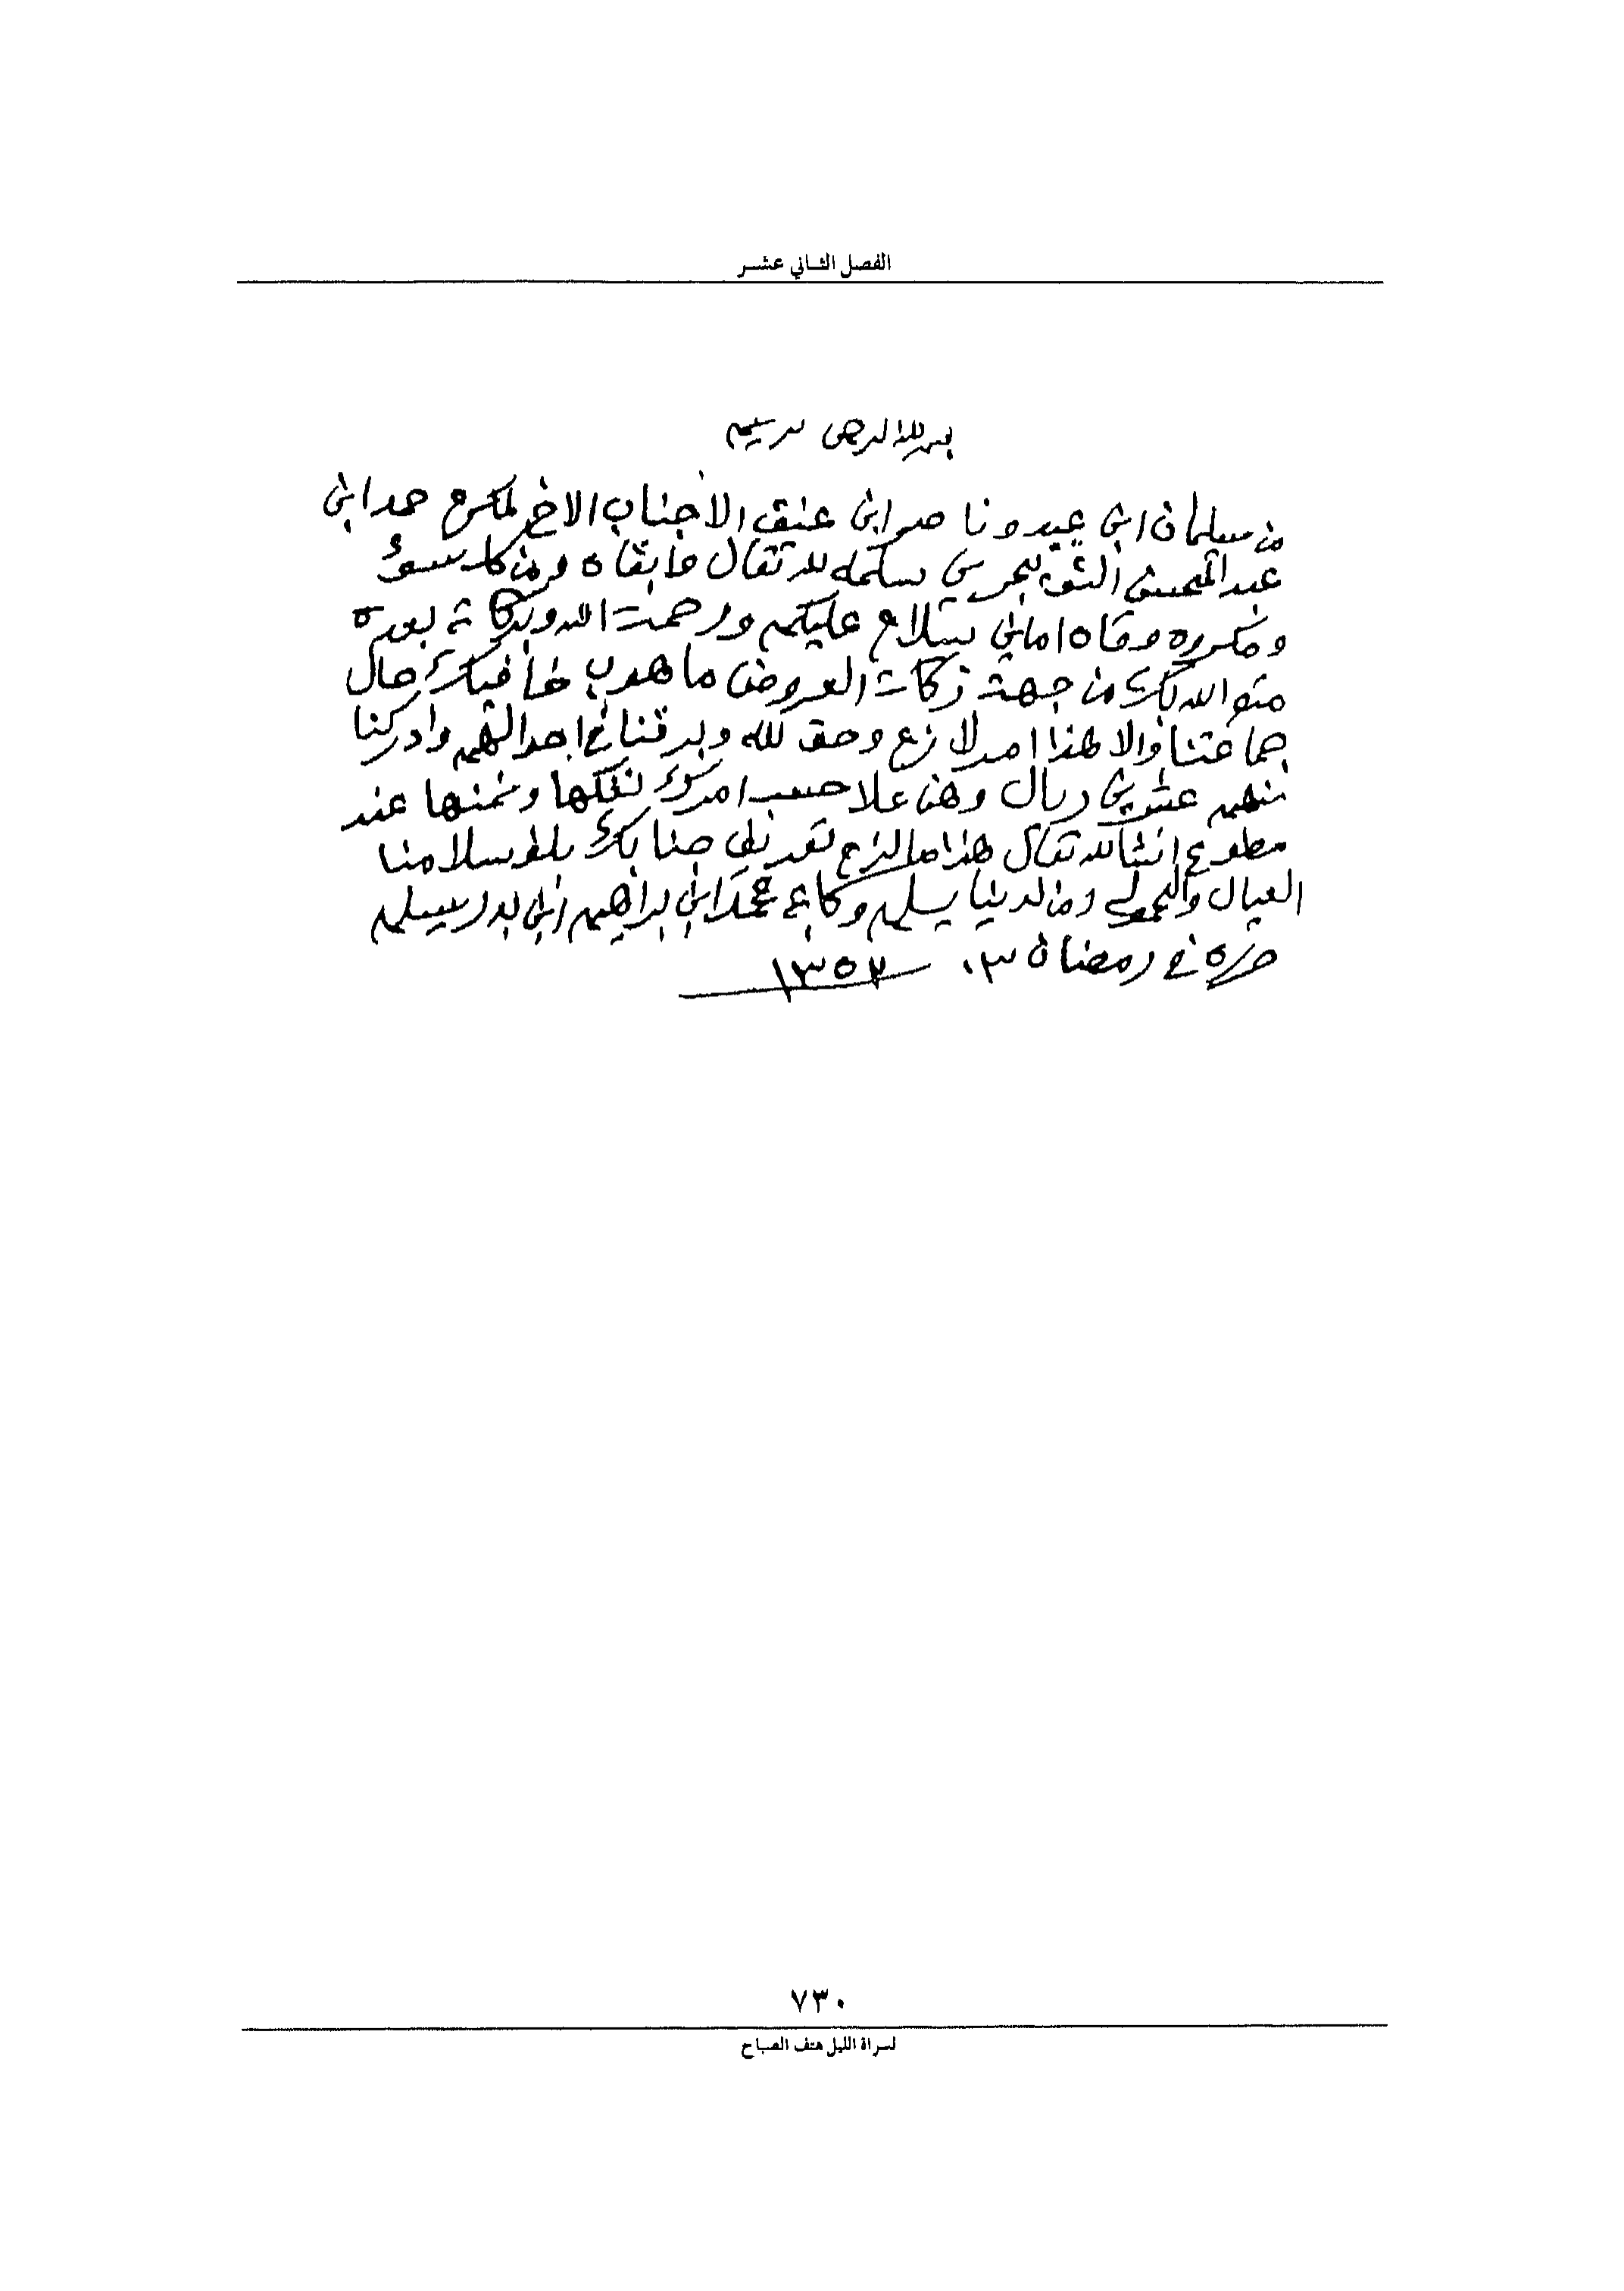 الفصل الثاني عشر
بسم الله الرحمن
من سليمان ابن عبيد وناصر ابن عنيق الا جناب الاخ لمكرم حمد ابن
عبد المحسن التويجري سلمه لله تعال وابقاه ومن كل سوء
ومكروه وقاه امابن سلام عليكم ورحمت الله وبركاته بعده
متع الله بك من جهت زكات العروض ما هوب خافيك حال
جماعتنا والا هذا امر لازم وحق لله وبرقنا في احوالهم وادركنا
منهم عشرين ريال وهن علا حسب امرك وثمنها عند
مطوع انشالله تعال هذا ما لزم تعريف جنابك بلغ سلامنا
العيال ومن لدينا يسلم وكاتبه محمد ابن ابراهيم ابن بدر يسلم
حرره في رمضان ٣٠ ١٣٥٢
٧٣٠
لسراة الليل هتف الصباح